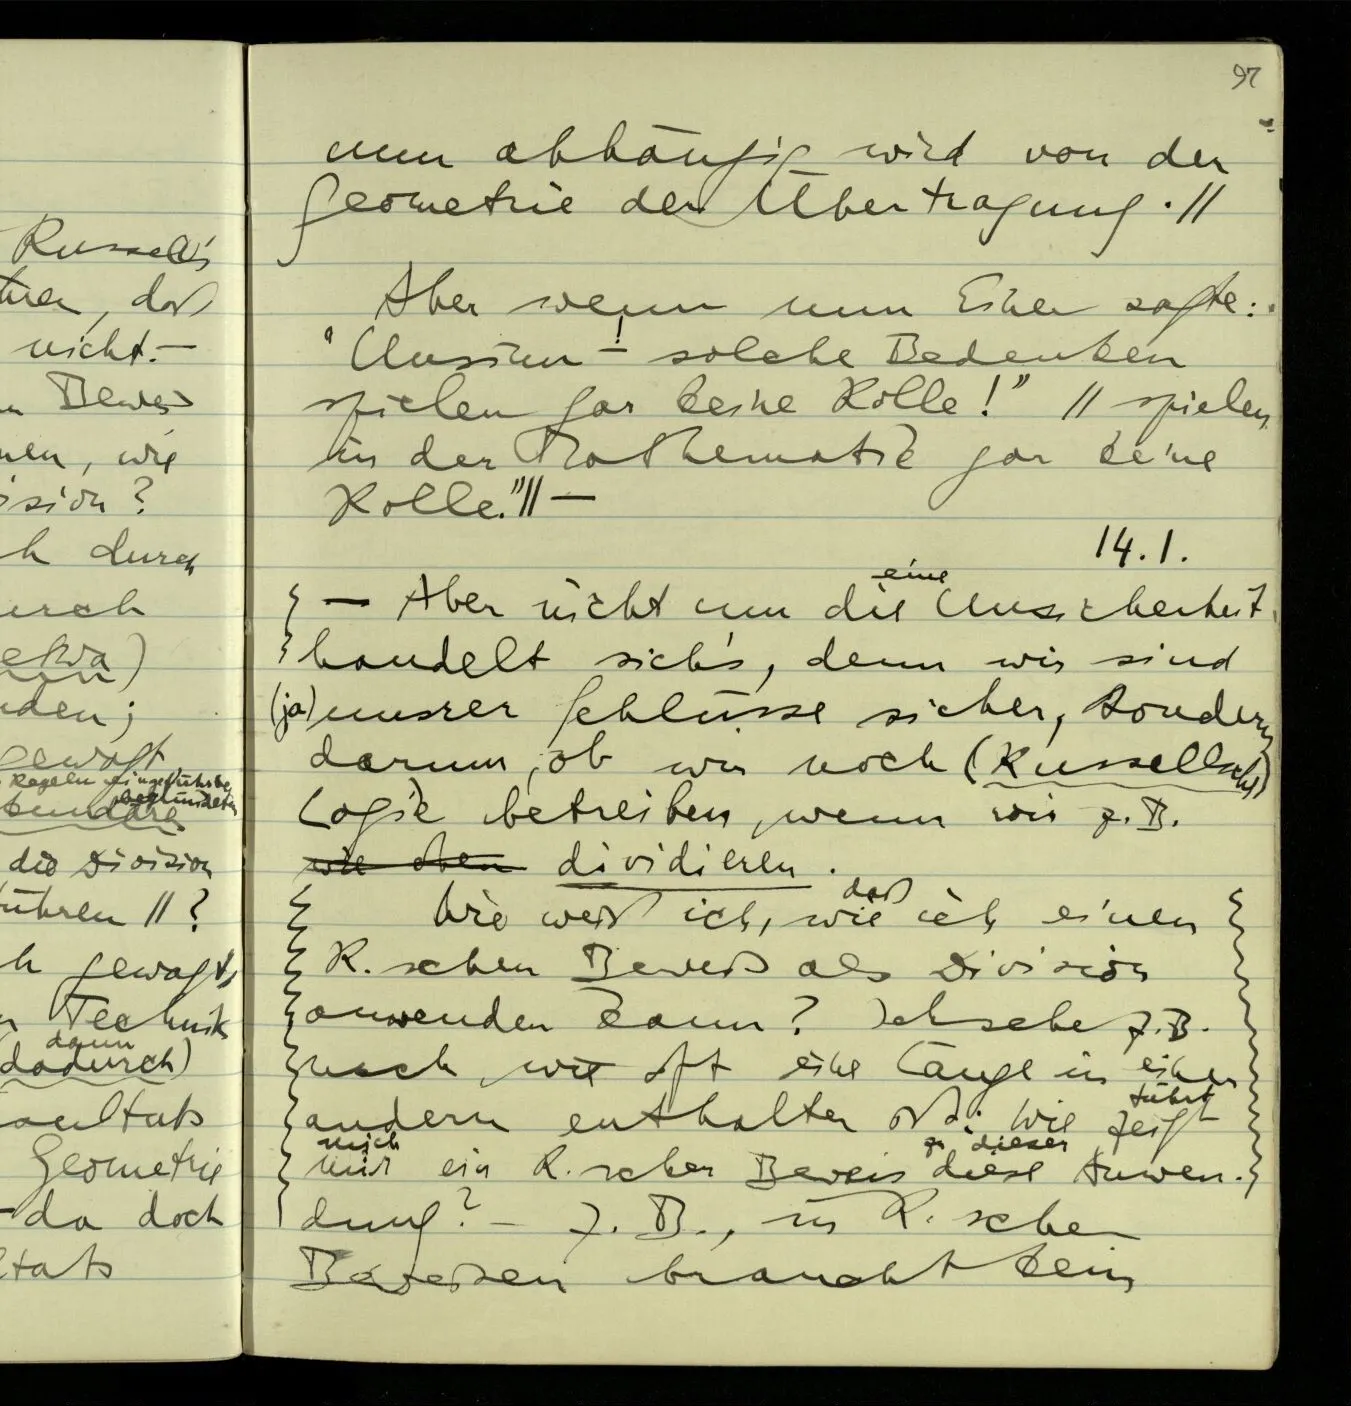 Russell's
, daß
nicht.–
Bewei
, wie
ision?
h durch
urch
etwa)
nden;
gewagt
Regeln eingeführte
begründeten
sendäre
die Division
ühren || ?
h gewagt,
Technik
dann
(dadurch)
esultats
Geometrie
– da doch
ltats
97
nun abhängig wird von der
Geometrie der Übertragung. ||
Aber wenn nun Einer sagte:
"Unsinn! – solche Bedenken
spielen gar keine Rolle!" || spielen
in der Mathematik gar keine
Rolle." || –
14.1.
eine
– Aber nicht um die Unsicherheit
handelt sich's, denn wir sind
(ja) unsrer Schlüsse sicher, sondern
darum, ob wir noch (Russellsche)
Logik betreiben, wenn wir z.B.
wie oben dividieren.
daß
Wie weiß ich, wie ich einen
R.schen Beweis als Division
anwenden kann? Ich sehe z.B.
nach, wie oft eine Länge in einer
führt
andern enthalten ist: Wie zeigt
mich zu dieser
mir ein R.scher Beweis diese Anwen-
dung? – Z.B., in R.schen
Beweisen braucht kein